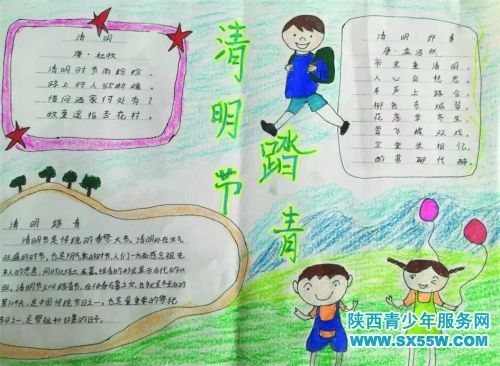 清明
唐·杜牧
清明时节雨纷纷,
路上行人欲断魂.
借问酒家何处有?
牧童遥指杏花村.
清明节
踏青
清明即事
唐·孟浩然
帝里重清明,
人心自愁思.
车声上路合,
柳色东城翠.
花落草齐生,
莺飞蝶双戏.
空堂坐相忆,
酌茗聊代醉.
清明踏青
清明节是传统的春祭大节,清明处在生气
旺盛的时节,也是阴气衰退的时节,人们一方面感念祖先
亲人的恩惠,同时以
现.清明节又叫踏青节,在仲春与暮春之交,也就是冬至后的
第104天,是中国传统节日之一,也是最重要的祭祀
节日之一,是祭祖和扫墓的日子.
陕西青少年服务网
www.sx55w.com